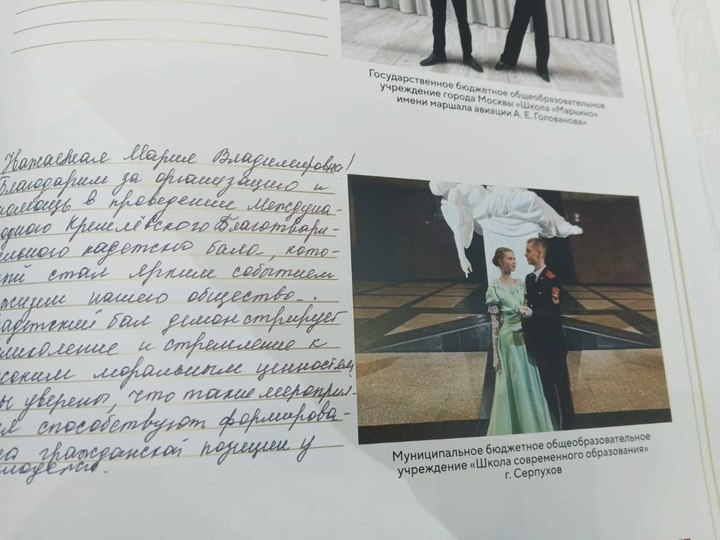 Государственное бюджетное общеобразовательное
учреждение города Москвы «Школа «Марьино»
имени маршала авиации А. Е. Голованова»
Мария Владимировна!
Благодарим за организацию и
помощь в проведении Междуна-
одного Кремлёвского Благотвори-
ельного кадетского бала, кото-
ый стал ярким событием
жизни нашего общества.
адетский бал демонстрирует
и стремление к
соким моральным ценностям
ы уверены, что такие мероприя-
я способствуют формирова-
гражданской позиции у
Муниципальное бюджетное общеобразовательное
учреждение «Школа современного образования»
г. Серпухов